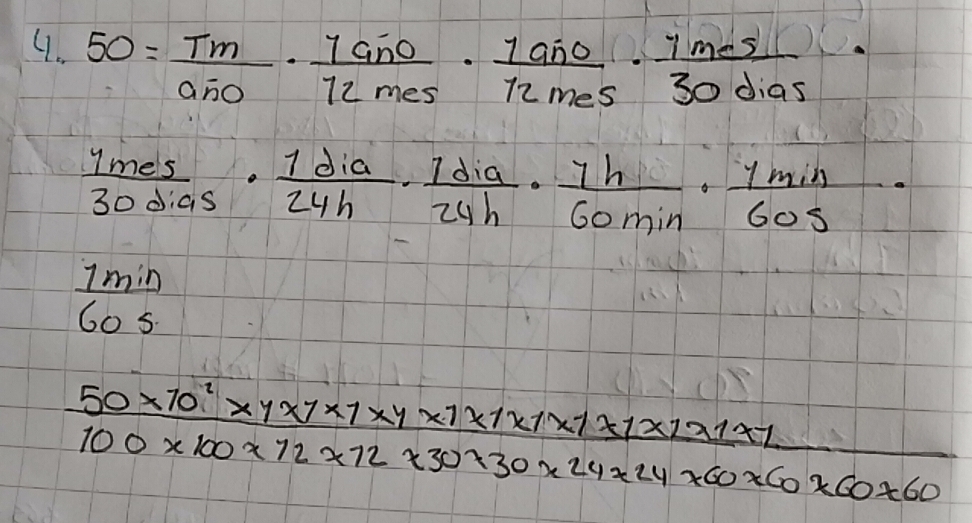 4. 50 = Tm/año · 1 año/12 mes · 1 año/12 mes · 1 mes/30 dias ·
1 mes/30 dias · 1 dia/24h · 1 dia/24h · 1h/60 min · 1 min/60 s ·
1 min/60 s.
50 x 10² x 1 x 1 x 1 x 1 x 1 x 1 x 1 x 1 x 1 x 1 x 1 x 1
100 x 100 x 12 x 12 x 30 x 30 x 24 x 24 x 60 x 60 x 60 x 60